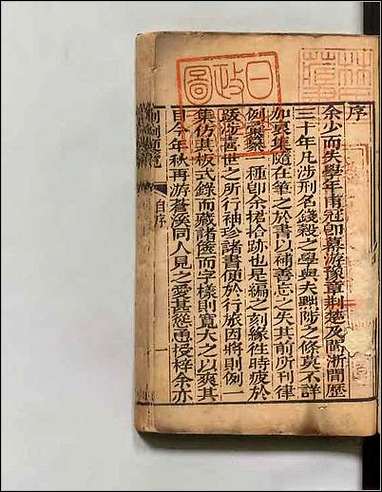 序
余少而失學年甫冠卽幕游豫章荆楚及閩浙間歷
三十年凡涉刑名錢穀之學與夫黜陟之條莫不詳
加裒集隨在筆之於書以補善忘之失其前所刊律
例一種卽余捃拾跡也是編之刻緣往時疲於
跋涉當世之所行袖珍諸書便於行旅因將則例一
集仿其板式錄而藏諸篋而字樣則寬大之以爽其
目今年秋再游蒼溪同人見之愛其慫甬授梓余亦
則例便覽 自序 一